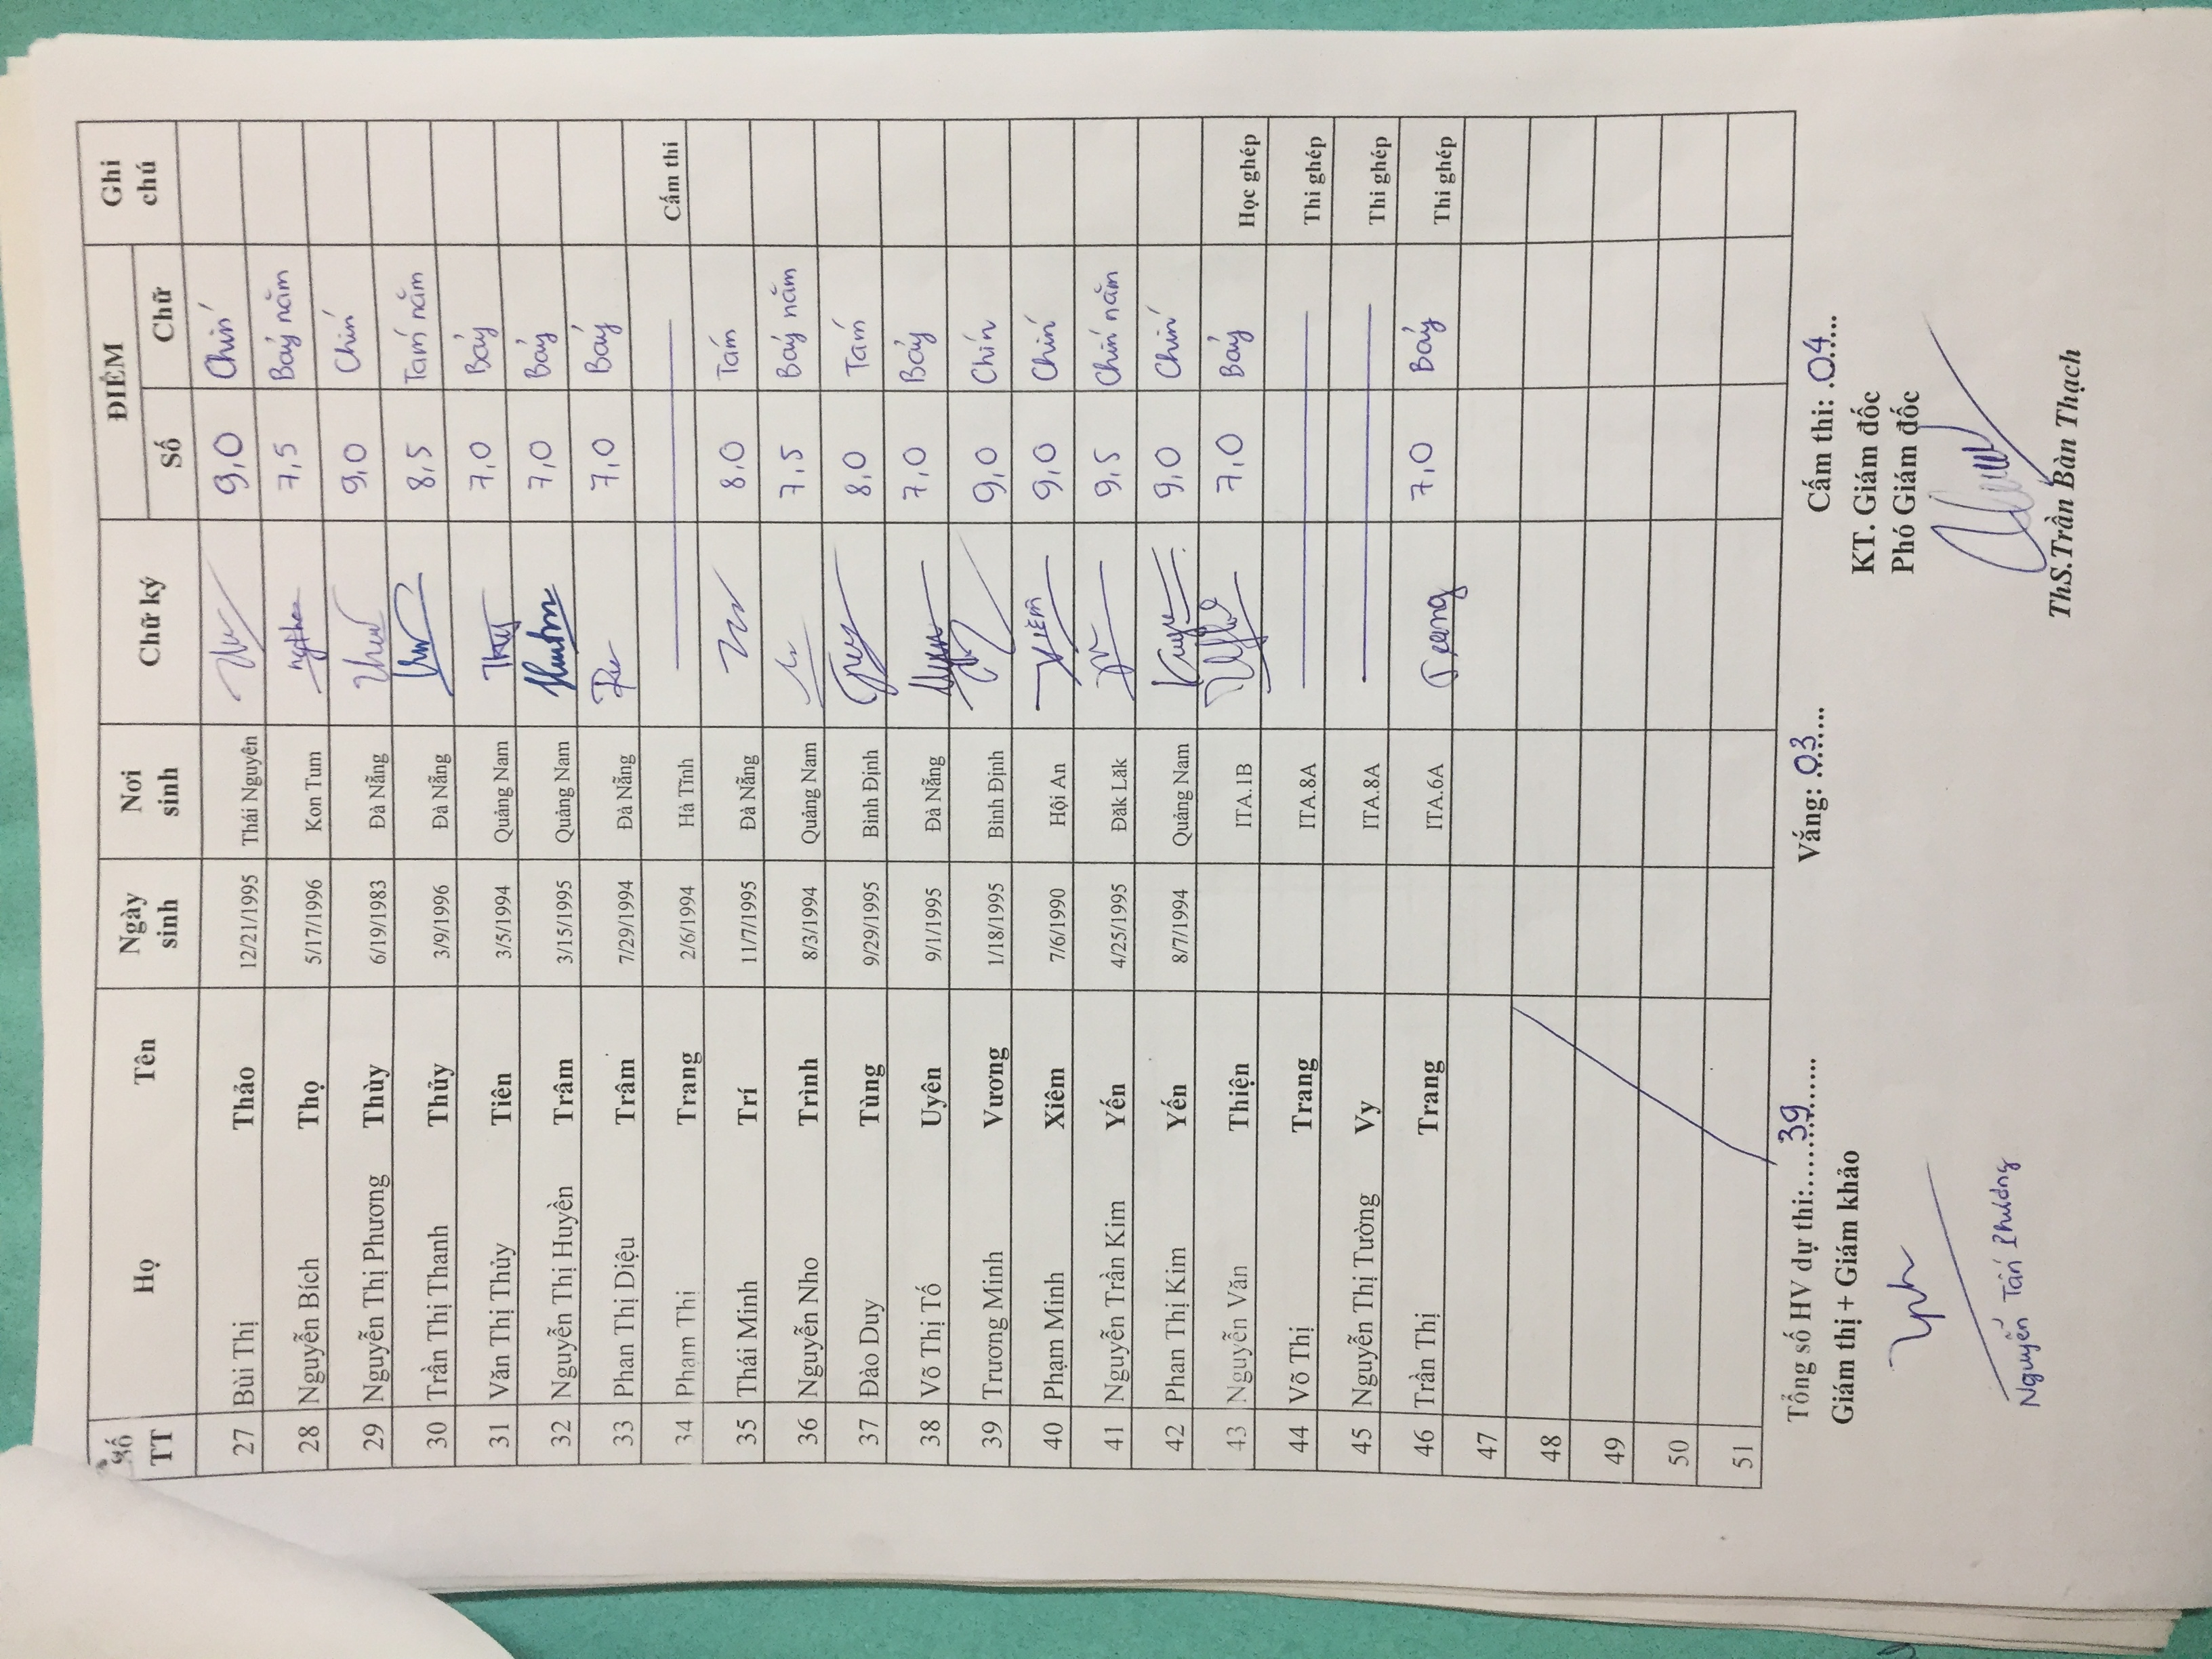 Số TT Họ Tên Ngày sinh Nơi sinh Chữ ký ĐIỂM Ghi chú
Số Chữ
27 Bùi Thị Thảo 12/21/1995 Thái Nguyên 9,0 Chín
28 Nguyễn Bích Thọ 5/17/1996 Kon Tum 7,5 Bảy năm
29 Nguyễn Thị Phương Thùy 6/19/1983 Đà Nẵng 9,0 Chín
30 Trần Thị Thanh Thủy 3/9/1996 Đà Nẵng 8,5 Tám năm
31 Văn Thị Thủy Tiên 3/5/1994 Quảng Nam 7,0 Bảy
32 Nguyễn Thị Huyền Trâm 3/15/1995 Quảng Nam 7,0 Bảy
33 Phan Thị Diệu Trâm 7/29/1994 Đà Nẵng 7,0 Bảy
34 Phạm Thị Trang 2/6/1994 Hà Tĩnh Cấm thi
35 Thái Minh Trí 11/7/1995 Đà Nẵng 8,0 Tám
36 Nguyễn Nho Trình 8/3/1994 Quảng Nam 7,5 Bảy năm
37 Đào Duy Tùng 9/29/1995 Bình Định 8,0 Tám
38 Võ Thị Tố Uyên 9/1/1995 Đà Nẵng 7,0 Bảy
39 Trương Minh Vương 1/18/1995 Bình Định 9,0 Chín
40 Phạm Minh Xiêm 7/6/1990 Hội An Xiêm 9,0 Chín
41 Nguyễn Trần Kim Yến 4/25/1995 Đăk Lăk 9,5 Chín năm
42 Phan Thị Kim Yến 8/7/1994 Quảng Nam 9,0 Chín
43 Nguyễn Văn Thiện ITA.1B 7,0 Bảy Học ghép
44 Võ Thị Trang ITA.8A Thi ghép
45 Nguyễn Thị Tường Vy ITA.8A Thi ghép
46 Trần Thị Trang ITA.6A Trang 7,0 Bảy Thi ghép
47
48
49
50
51
Tổng số HV dự thi:.....39....... Vắng: .03.... Cấm thi: .04....
Giám thị + Giám khảo KT. Giám đốc
Phó Giám đốc
Nguyễn Tấn Phương ThS.Trần Bàn Thạch